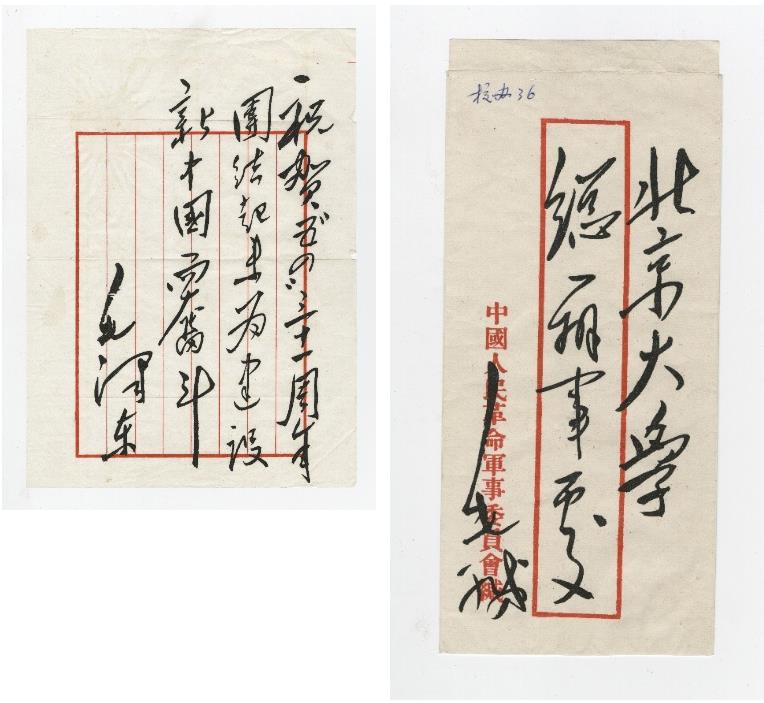 祝贺“五四”三十一周年
團结起来为建设
新中國而奮斗
毛澤东
校办36
北京大學
總辦事處
中國人民革命軍事委員會緘
毛緘